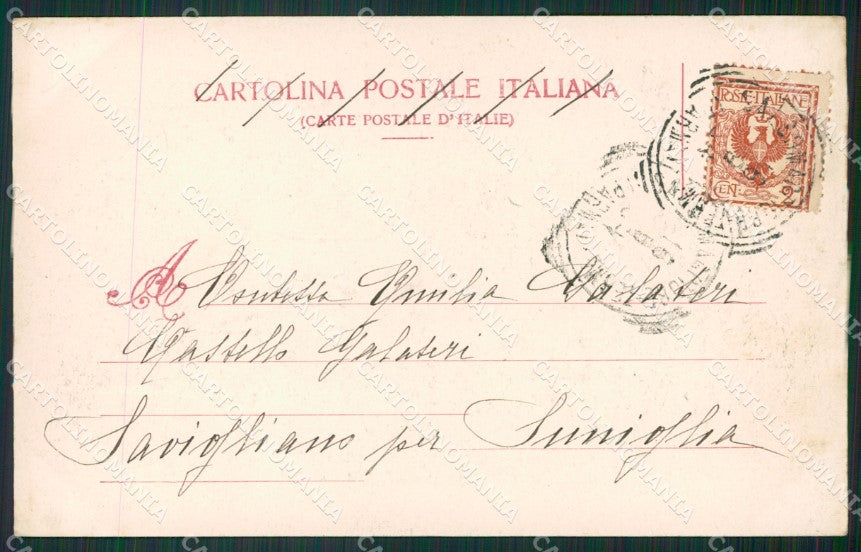 CARTOLINA POSTALE ITALIANA
(CARTE POSTALE D'ITALIE)
POSTE ITALIANE
CEN. 2
A Contessa Emilia Galateri
Castello Galateri
Savigliano per Suniglia
CARTOLINOMANIA